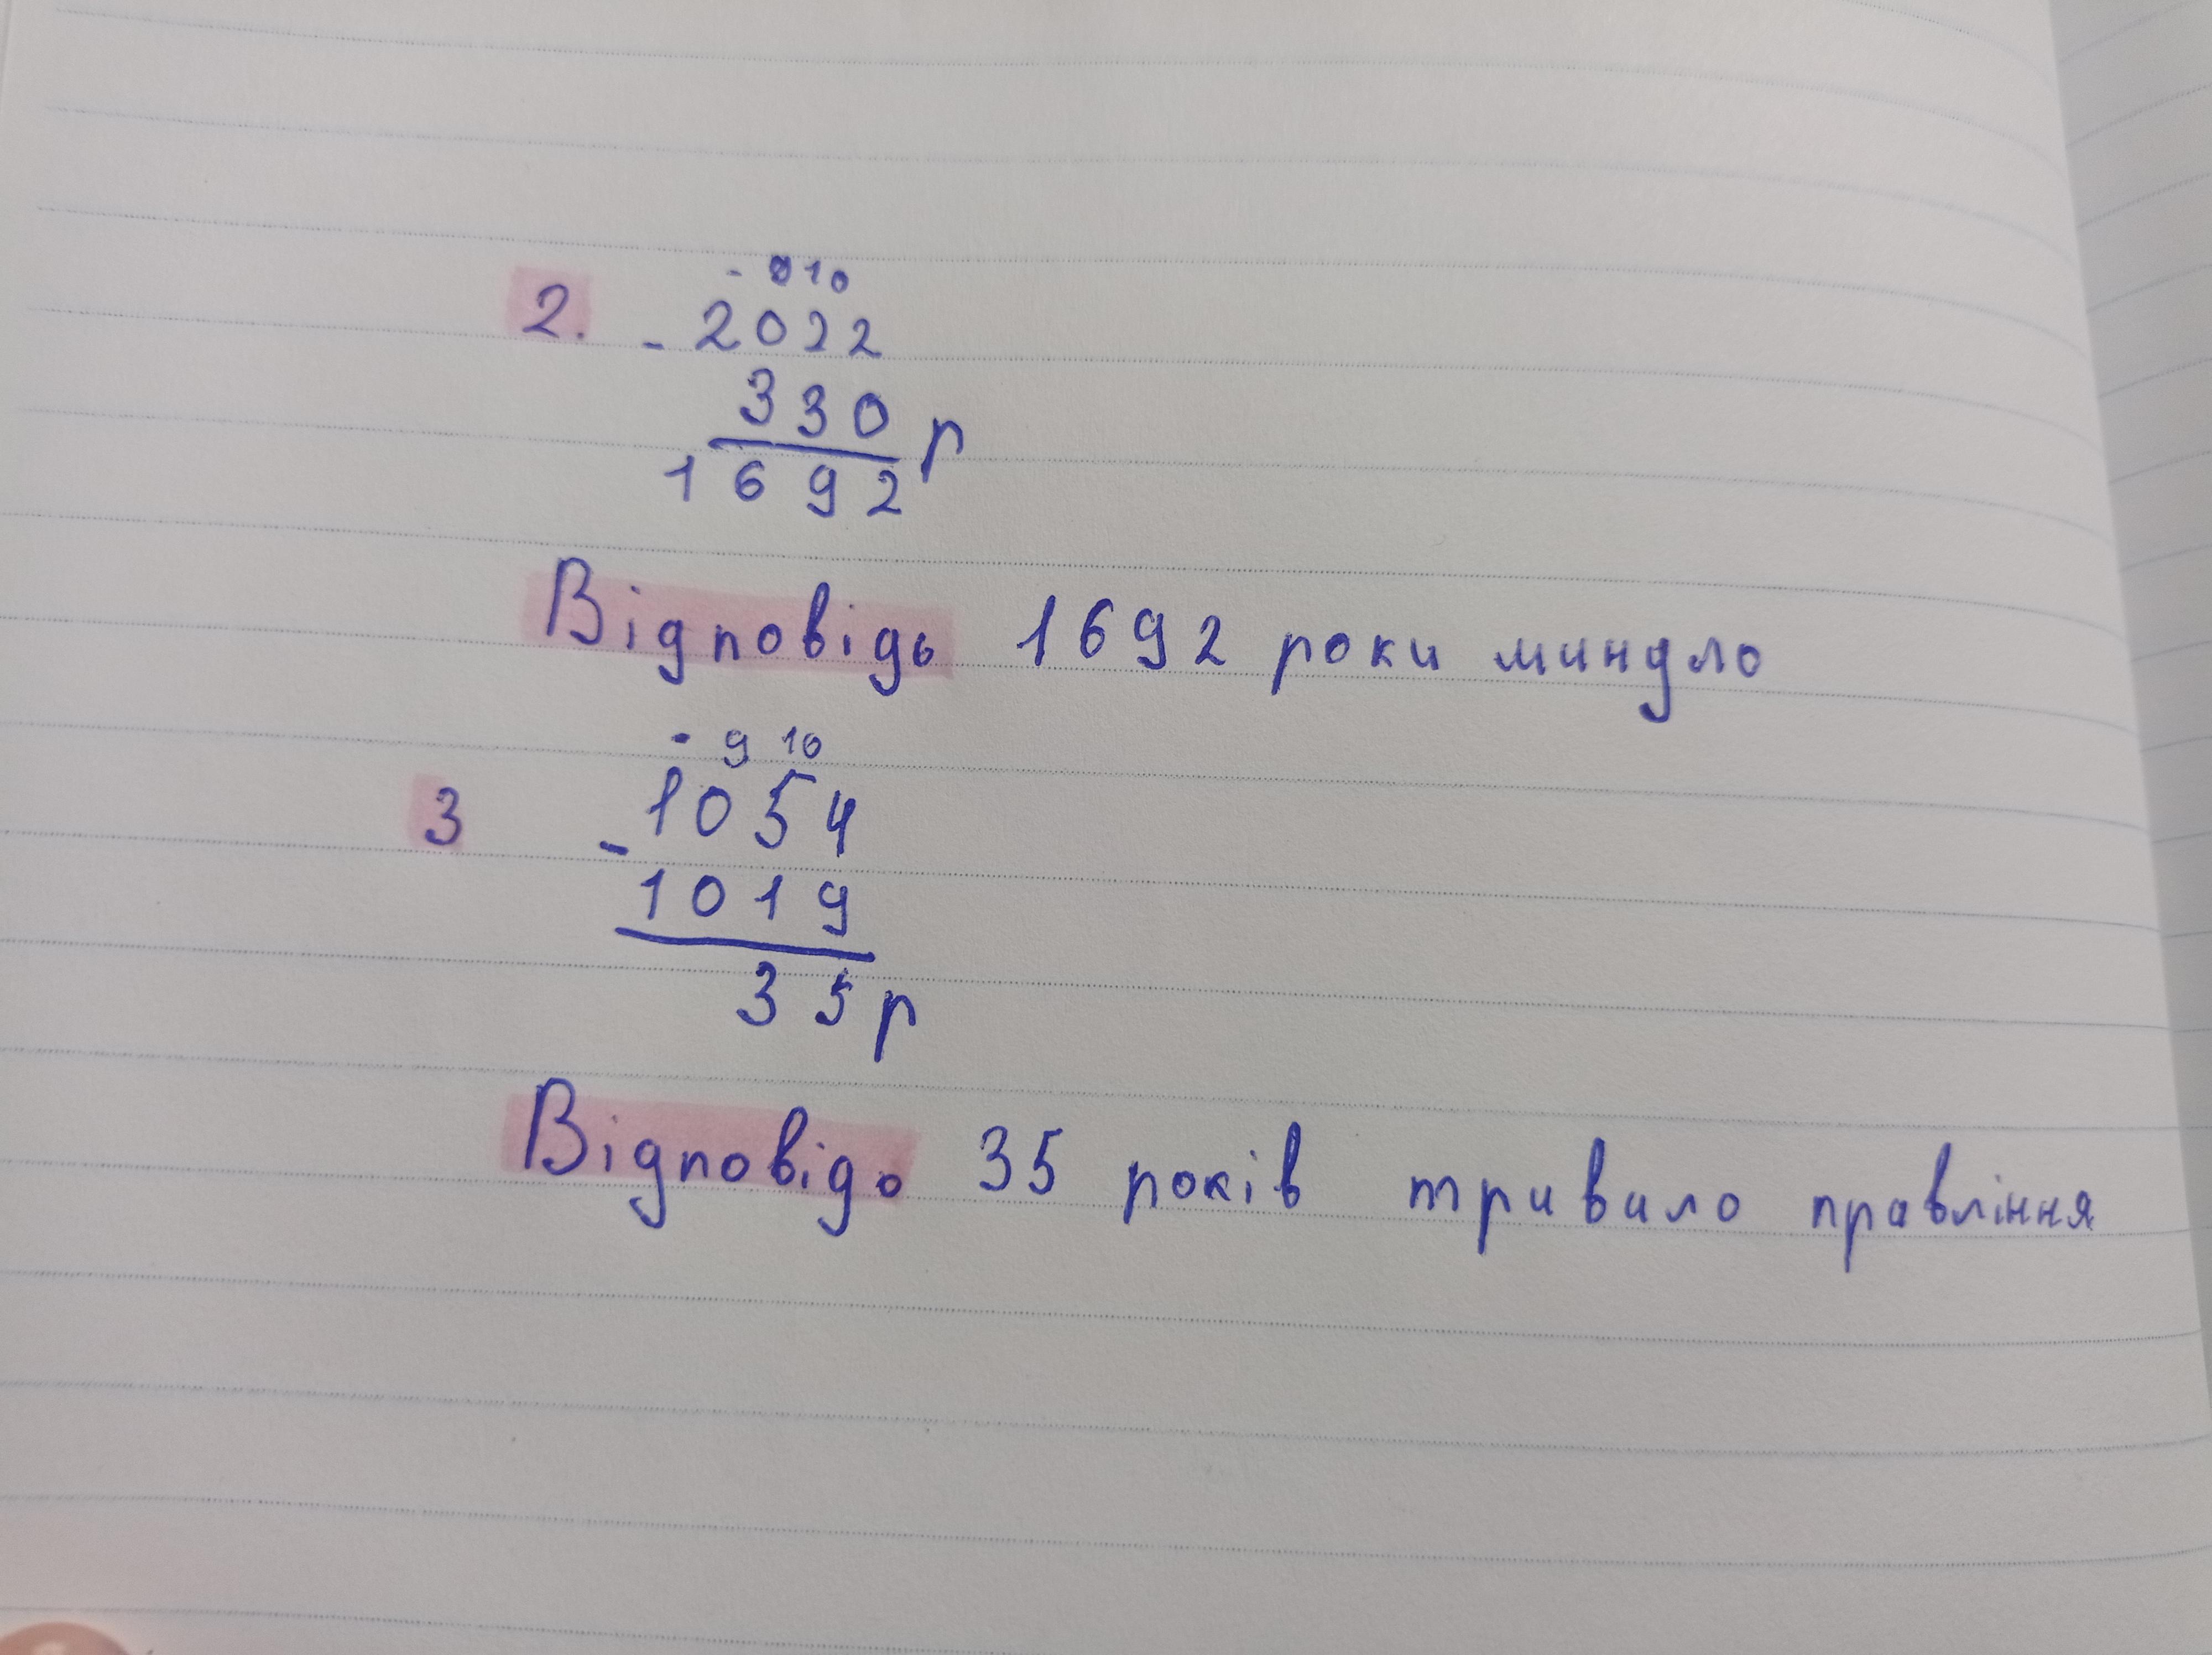 - 9 10
2. - 2022
330 р
1692
Відповідь 1692 роки минуло
- 9 10
3 - 1054
1019
35 р
Відповідь 35 років тривало правління